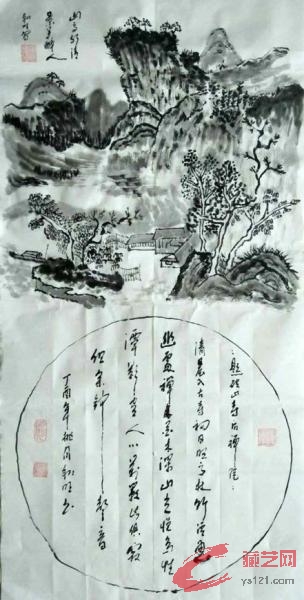 景美醉人
题破山寺后禅院
清晨入古寺初日照高林竹径通
幽處禪房花木深山光悦鸟性
潭影空人心萬籁此俱寂
但余钟磬音
丁酉年桃月
藏艺网
ys121.com